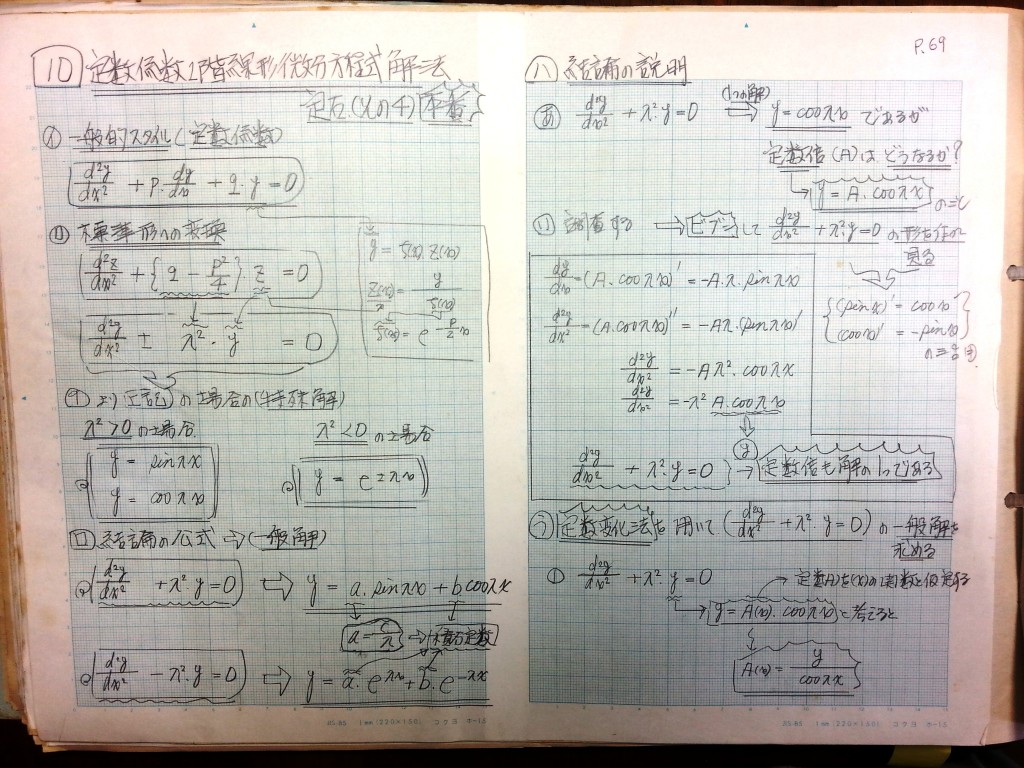 10 定数係数2階線形微分方程式解法
定石(その4) 本番
イ 一般的スタイル(定数係数)
d²y/dx² + P・dy/dx + q・y = 0
標準形への変換
d²z/dx² + {q - P²/4} z = 0
d²y/dx² ± λ²・y = 0
y = ζ(x)・Z(x)
Z(x) = y/ζ(x)
ζ(x) = e^{-P/2 x}
より(上記)の場合の(特殊解)
λ²>0の場合
y = sinλx
y = cosλx
λ²<0の場合
y = e^{±λx}
ロ 結論の公式 ⇒ (一般解)
d²y/dx² + λ²・y = 0 ⇨ y = a・sinλx + b cosλx
a = c/λ → 積分定数
d²y/dx² - λ²・y = 0 ⇨ y = a・e^{λx} + b・e^{-λx}
P.69
ハ 結論の説明
あ d²y/dx² + λ²・y = 0 ⇨ (1つの解) y = cosλx であるが
定数倍(A)は、どうなるか?
y = A・cosλx のこと
い 調査する ⇨ ビブンして d²y/dx² + λ²y = 0 の形を作れ
見る
dy/dx = (A・cosλx)' = -Aλ・sinλx
d²y/dx² = (A・cosλx)'' = -Aλ・(sinλx)'
d²y/dx² = -Aλ²・cosλx
d²y/dx² = -λ² A・cosλx
(sinx)' = cosx
(cosx)' = -sinx
y
d²y/dx² + λ²・y = 0 → 定数倍も解の1つである
う 定数変化法を用いて (d²y/dx² + λ²・y = 0) の一般解を
求める
① d²y/dx² + λ²・y = 0
定数(A)を(x)の関数と仮定する
y = A(x)・cosλx と考えると
A(x) = y/cosλx
1mm(220×160) コクヨ ホ-15
1mm(220×160) コクヨ ホ-15